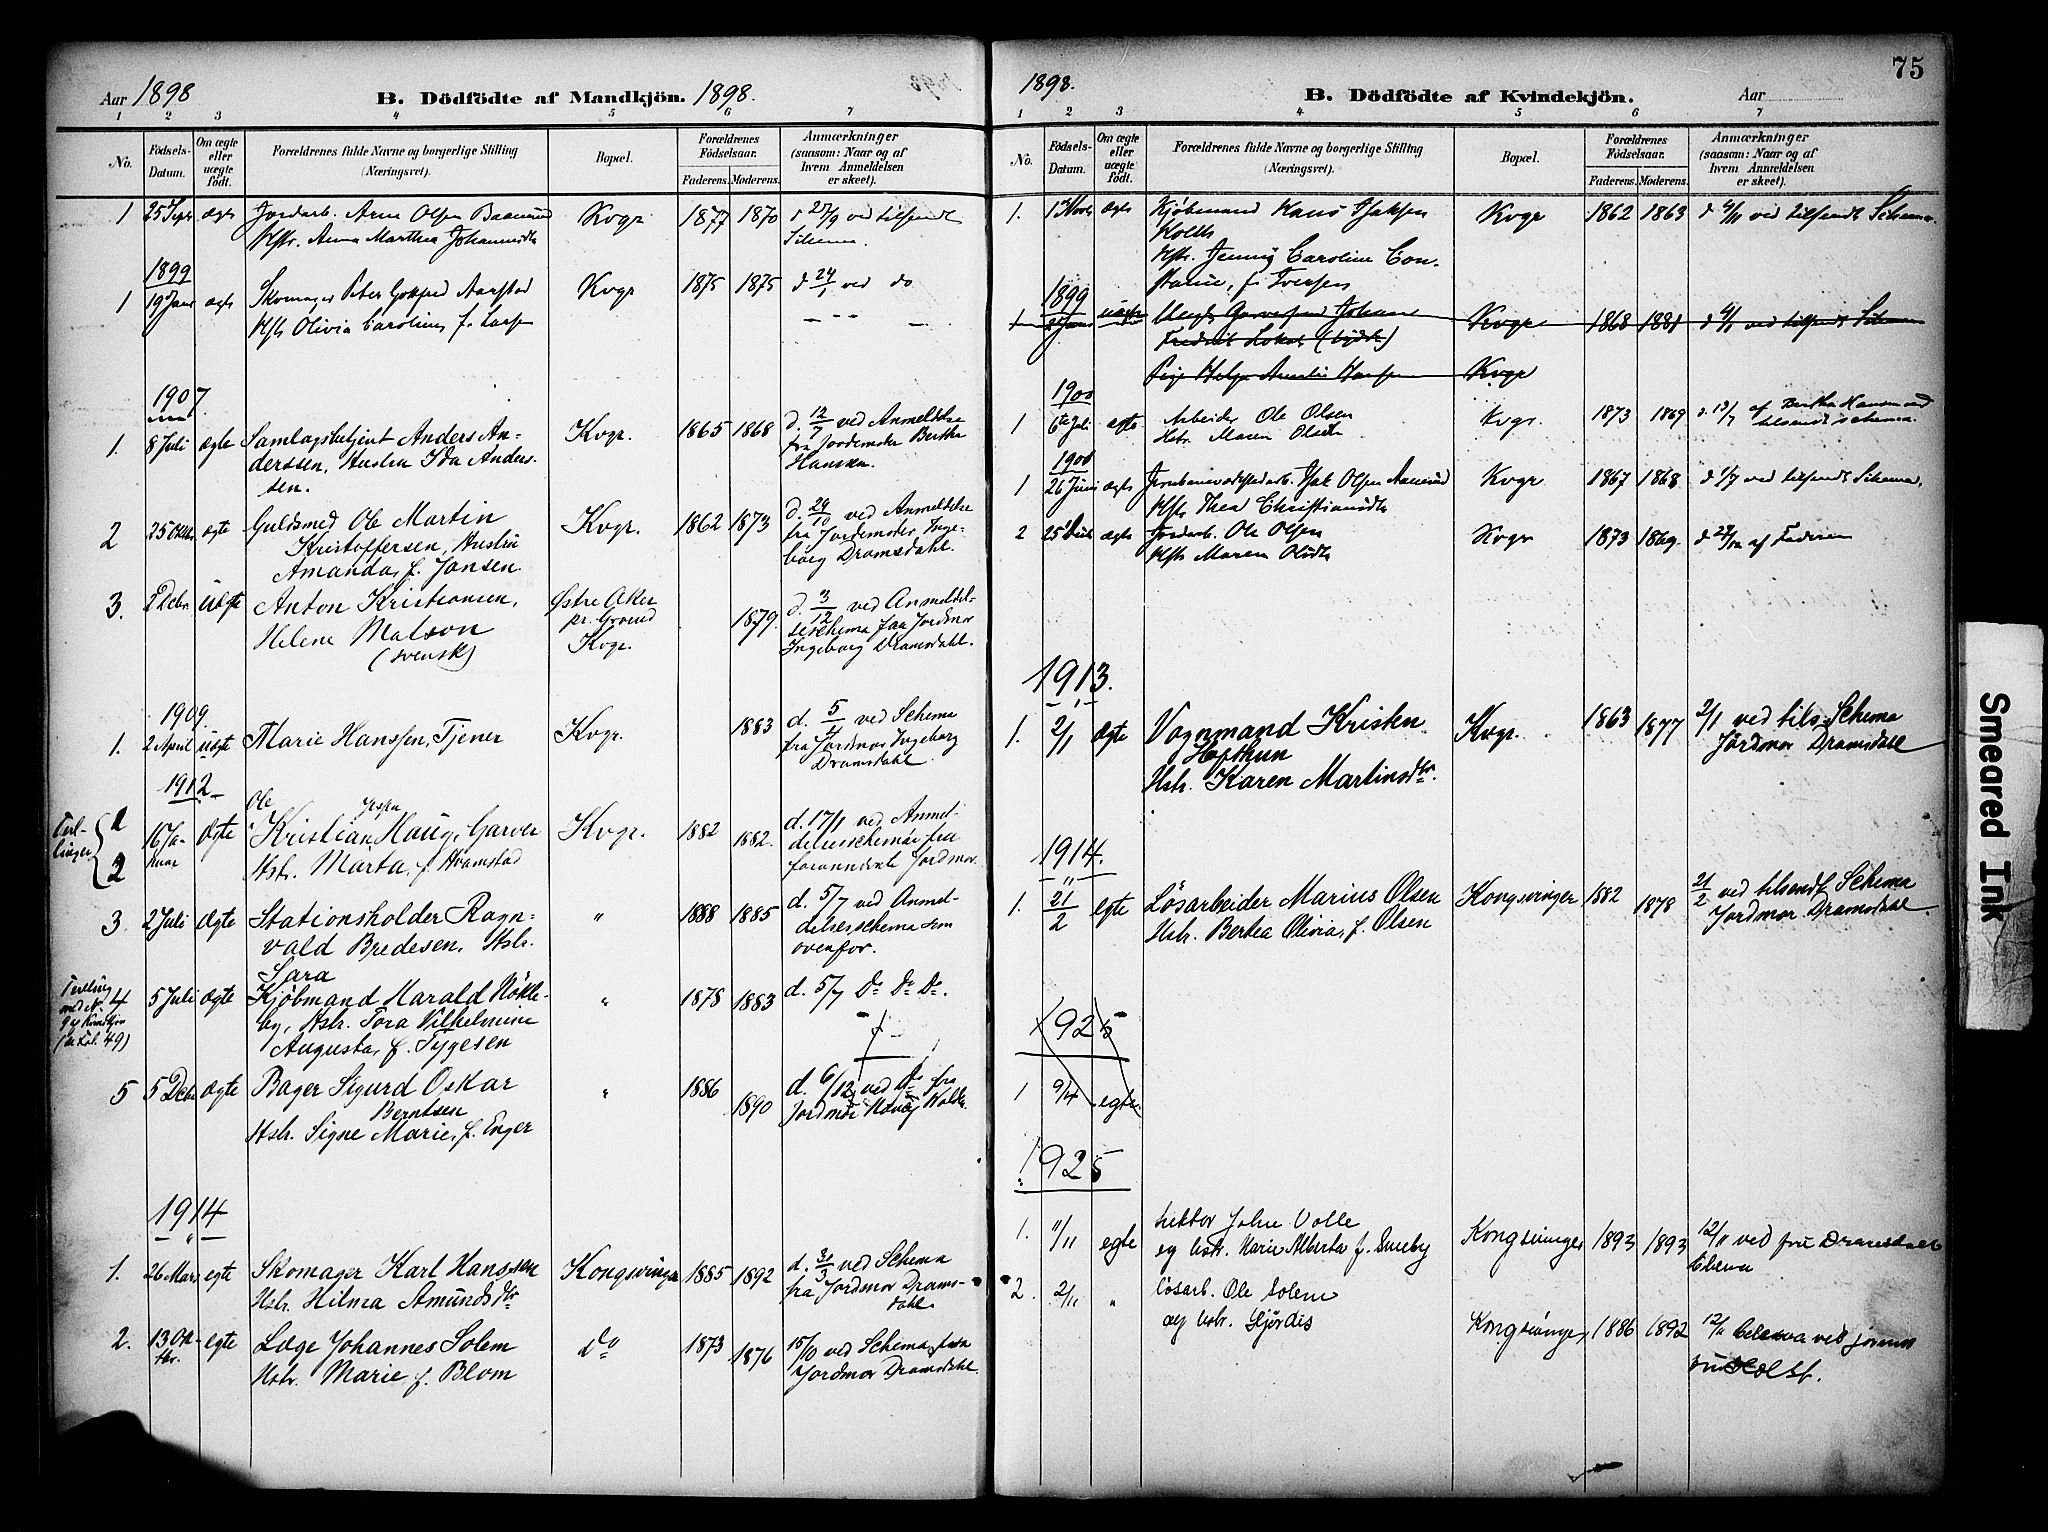 Aar 1898
B. Dödfödte af Mandkjön. 1898.
1 2 3 4 5 6 7
No. Födsels-Datum. Om ægte eller uægte født. Forældrenes fulde Navne og borgerlige Stilling (Næringsvei). Bopæl. Forældrenes Födselsaar. Faderens. Moderens. Anmærkninger (saasom: Naar og af hvem Anmeldelsen er skeet).
1 25 Septr ægte Jordarb. Arne Olsen Kvgr 1877 1870 d 27/9 ved tilsendt
Hstr. Anna Marthea Johannesdtr Schema.
1899
1 19 Janr ægte Skomager Peter Gotfred Aarstad Kvgr 1875 1875 d 24/1 ved do
Hstr Olivia Caroline, f. Larsen
1907
1. 8 Juli ægte Samlagsbetjent Anders An- Kvgr. 1865 1868 d. 12/7 ved Anmeldelse
derssen, Hustru Ida Anders- fra Jordemoder Bertha
sen. Hansen.
2 25 Oktbr ægte Guldsmed Ole Martin Kvgr. 1862 1873 d. 29/10 ved Anmeldelse
Kristoffersen, Hustru fra Jordemoder Inge-
Amanda, f. Jansen. borg Dramsdahl.
3. 2 Debr. uægte Anton Kristiansen, Østre Aker 1879. d. 3/12 ved Anmeldel-
Helene Matson pr. Grorud seschema fra Jordmor
(svensk) Kvgr. Ingeborg Dramsdahl.
1909.
1. 2 April uægte Marie Hanssen, Tjener Kvgr. 1883 d. 5/4 ved Schema
fra Jordmor Ingeborg
Dramsdahl.
1912
Tvil-
linger 1 2 16 Ja-
nuar Ægte Ole
Kristian Haug, Garver Kvgr. 1882 1882. d. 17/1 ved Anmel-
Hstr. Marta, f. Hramstad delsesschema fra
forannævnte Jordmor.
3. 2 Juli Ægte Stationsholder Ragn- " 1888 1885 d. 5/7 ved Anmel-
vald Bredesen, Hstr. delsesschema som
Sara ovenfor.
Tvilling
med No
94 Kvindkjön
(se fol. 49) 4 5 Juli Ægte Kjøbmand Harald Nökle- " 1878 1883 d. 5/7 Do Do Do.
by, Hstr. Tora Vilhelmine
Augusta, f. Tygesen
5 5 Debr Ægte Bager Sigurd Oskar " 1886 1890 d. 6/12 ved Do fra
Berntsen Jordmor
Hstr. Signe Marie, f. Enger
1914
1. 26 Mars egte Skomager Karl Hanssen Kongsvinger 1885 1892 d. 30/3 ved Schema
Hstr. Hilma Amundsdtr fra Jordmor Drams-
dahl.
2. 13 Ok-
tbr. egte Læge Johannes Solem Do 1873 1876 15/10 ved Schema fra
Hstr. Marie f. Blom Jordmor Dramsdahl.
75
1898.
B. Dödfödte af Kvindekjön.
Aar
1 2 3 4 5 6 7
No. Födsels-Datum. Om ægte eller uægte födt. Forældrenes fulde Navne og borgerlige Stilling (Næringsvei). Bopæl. Forældrenes Födselsaar. Faderens. Moderens. Anmærkninger (saasom: Naar og af hvem Anmeldelsen er skeet).
1. ægte Kjöbmand Hans Isaksen Kvgr 1862 1863 ved tilsendt Schema.
Holth
Hstr. Jenny Caroline Con-
stance, f. Iversen
1899
1 uægte Ungk. Garversvend Johan Kvgr 1868 1881 ved tilsendt Schema
Fredrik
Pige Helga Amalie Hansen Kvgr
1900
1 6te Juli ægte Arbeider Ole Olsen Kvgr. 1873 1869 d. 13/7 af Bertha Hansen ved
Hstr. Maren Olsen tilsendt schema.
1 26 Juni ægte Jernbaneværkstedarb. Isak Olsen Kvgr 1867 1868 d 1/7 ved tilsendt Schema.
Hstr. Thea Christiansdtr
2 ægte Jordarb. Ole Olsen Kvgr 1873 1869. d 27/12 af Faderen
Hstr Maren Olsdtr
1913.
1. 2/1 Ægte Vognmand Kristen Kvgr. 1863 1877 2/1 ved tils. Schema
Hefthun Jordmor Dramsdahl
Hstr. Karen Martinsdtr.
1914.
1. 21/2 egte Lösarbeider Marius Olsen Kongsvinger 1882 1878 21/2 ved tilsendt Schema
Hstr. Bertea Olivia, f. Olsen Jordmor Dramsdahl.
1925
1 9/4 egte
1925
1. 11/11 egte Lektor John Volle Kongsvinger 1893 1893 12/11 ved fru Dramsdahl
og hstr. Marie Alberta f. Smeby
2. 2/11 " Lösarb. Ole Solem
og hstr. Hjördis Kongsvinger 1886 1892 12/11 ved
Holst.
Smeared Ink